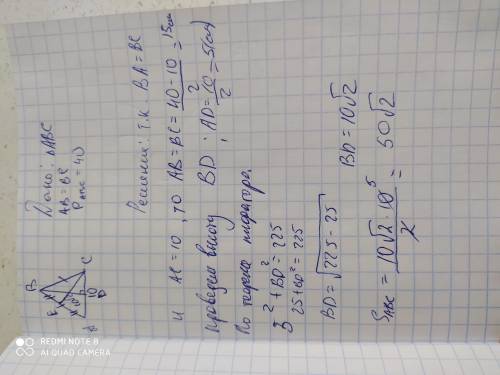 B
F
A
D
10
C
Дано: ΔABC
AB = BC
P_ABC = 40
Решение: т.к. BA = BC
и AC = 10, то AB = BC = (40 - 10)/2 = 15см
Проведем высоту BD; AD = 10/2 = 5(см)
По теореме пифагора.
5² + BD² = 225
25 + BD² = 225
BD = √(225 - 25)
BD = 10√2
S_ABC = (10√2 · 10⁵)/2 = 50√2
REDMI NOTE 8
AI QUAD CAMERA